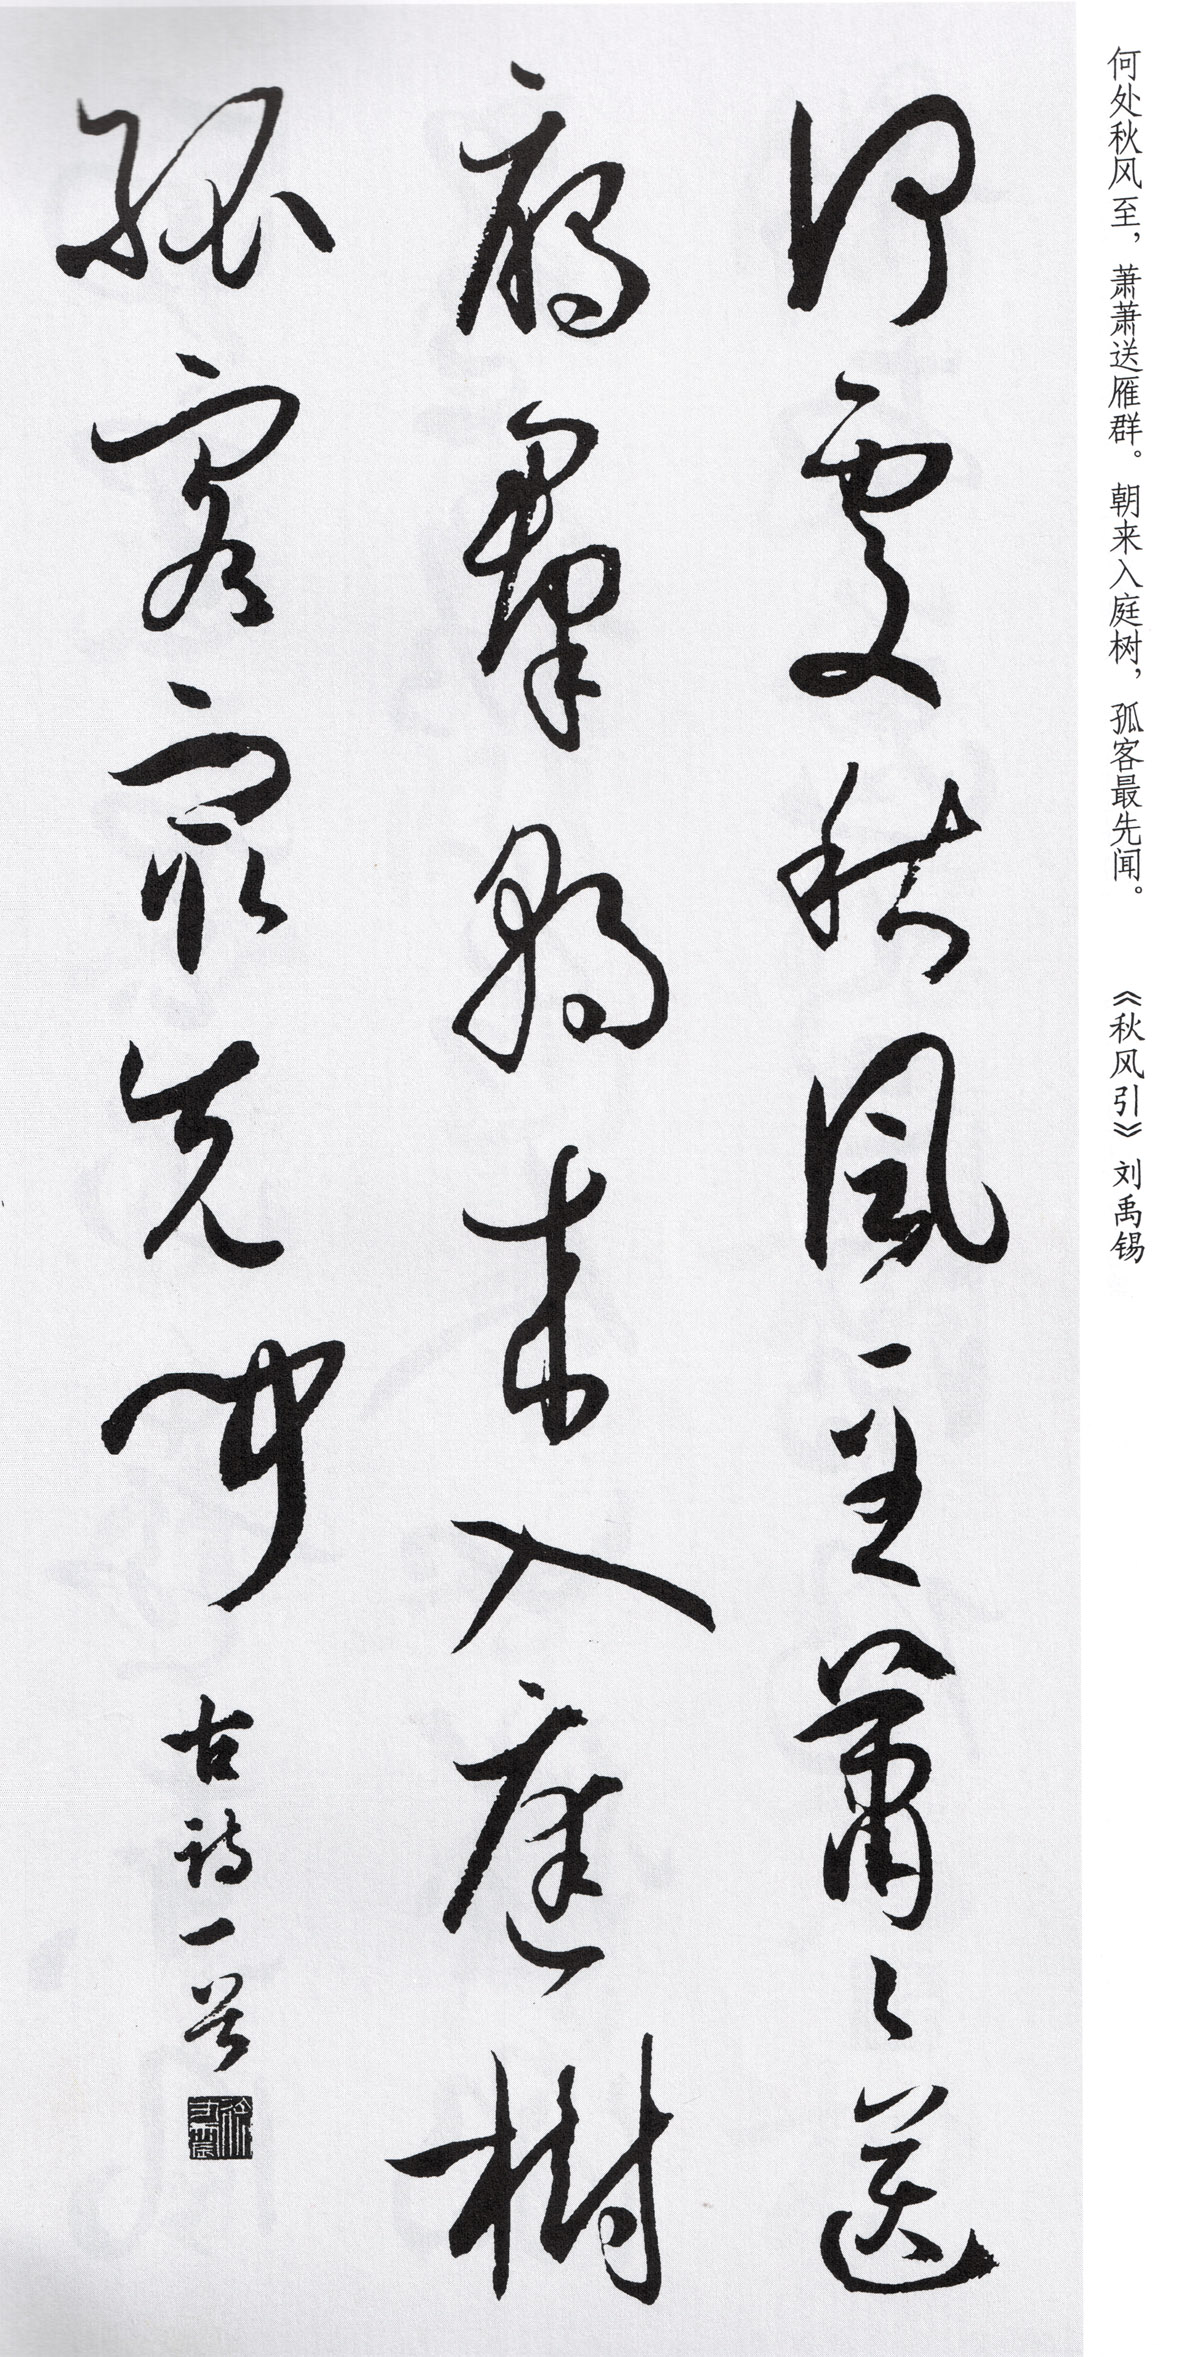 何处秋风至，萧萧送雁群。朝来入庭树，孤客最先闻。 《秋风引》 刘禹锡
何處秋風至蕭々送
雁羣朝来入庭樹
孤客最先闻
古诗一首